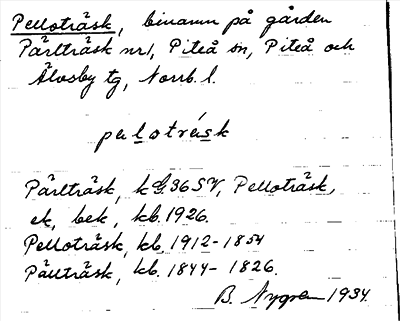 Pelloträsk, binamn på gården
Pärlträsk nr 1, Piteå sn, Piteå och
Älvsby tg, Norrb. l.
pæ l o t r á s k
Pärlträsk, k G 36 SV, Pelloträsk,
ek, bek, kb. 1926.
Pelloträsk, kb. 1912-1854
Pällträsk, kb. 1844-1826.
B. Nygren 1934